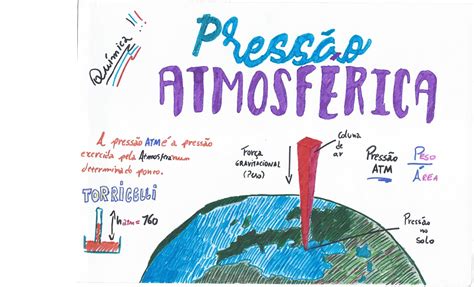 Química!!!
Pressão
ATMOSFÉRICA
A pressão ATM é a pressão
exercida pela Atmosfera num
determinado ponto.
TORRICELLI
hatm = 760
FORÇA
GRAVITACIONAL
(Peso)
COLUNA
DE
AR
Pressão
ATM
Peso
ÁREA
Pressão
no
solo